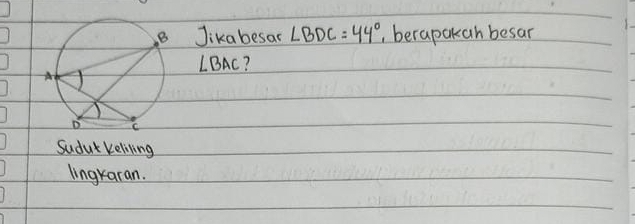 B
Jika besar ∠BDC = 44°, berapakah besar
∠BAC?
A
D
C
Sudut keliling
lingkaran.